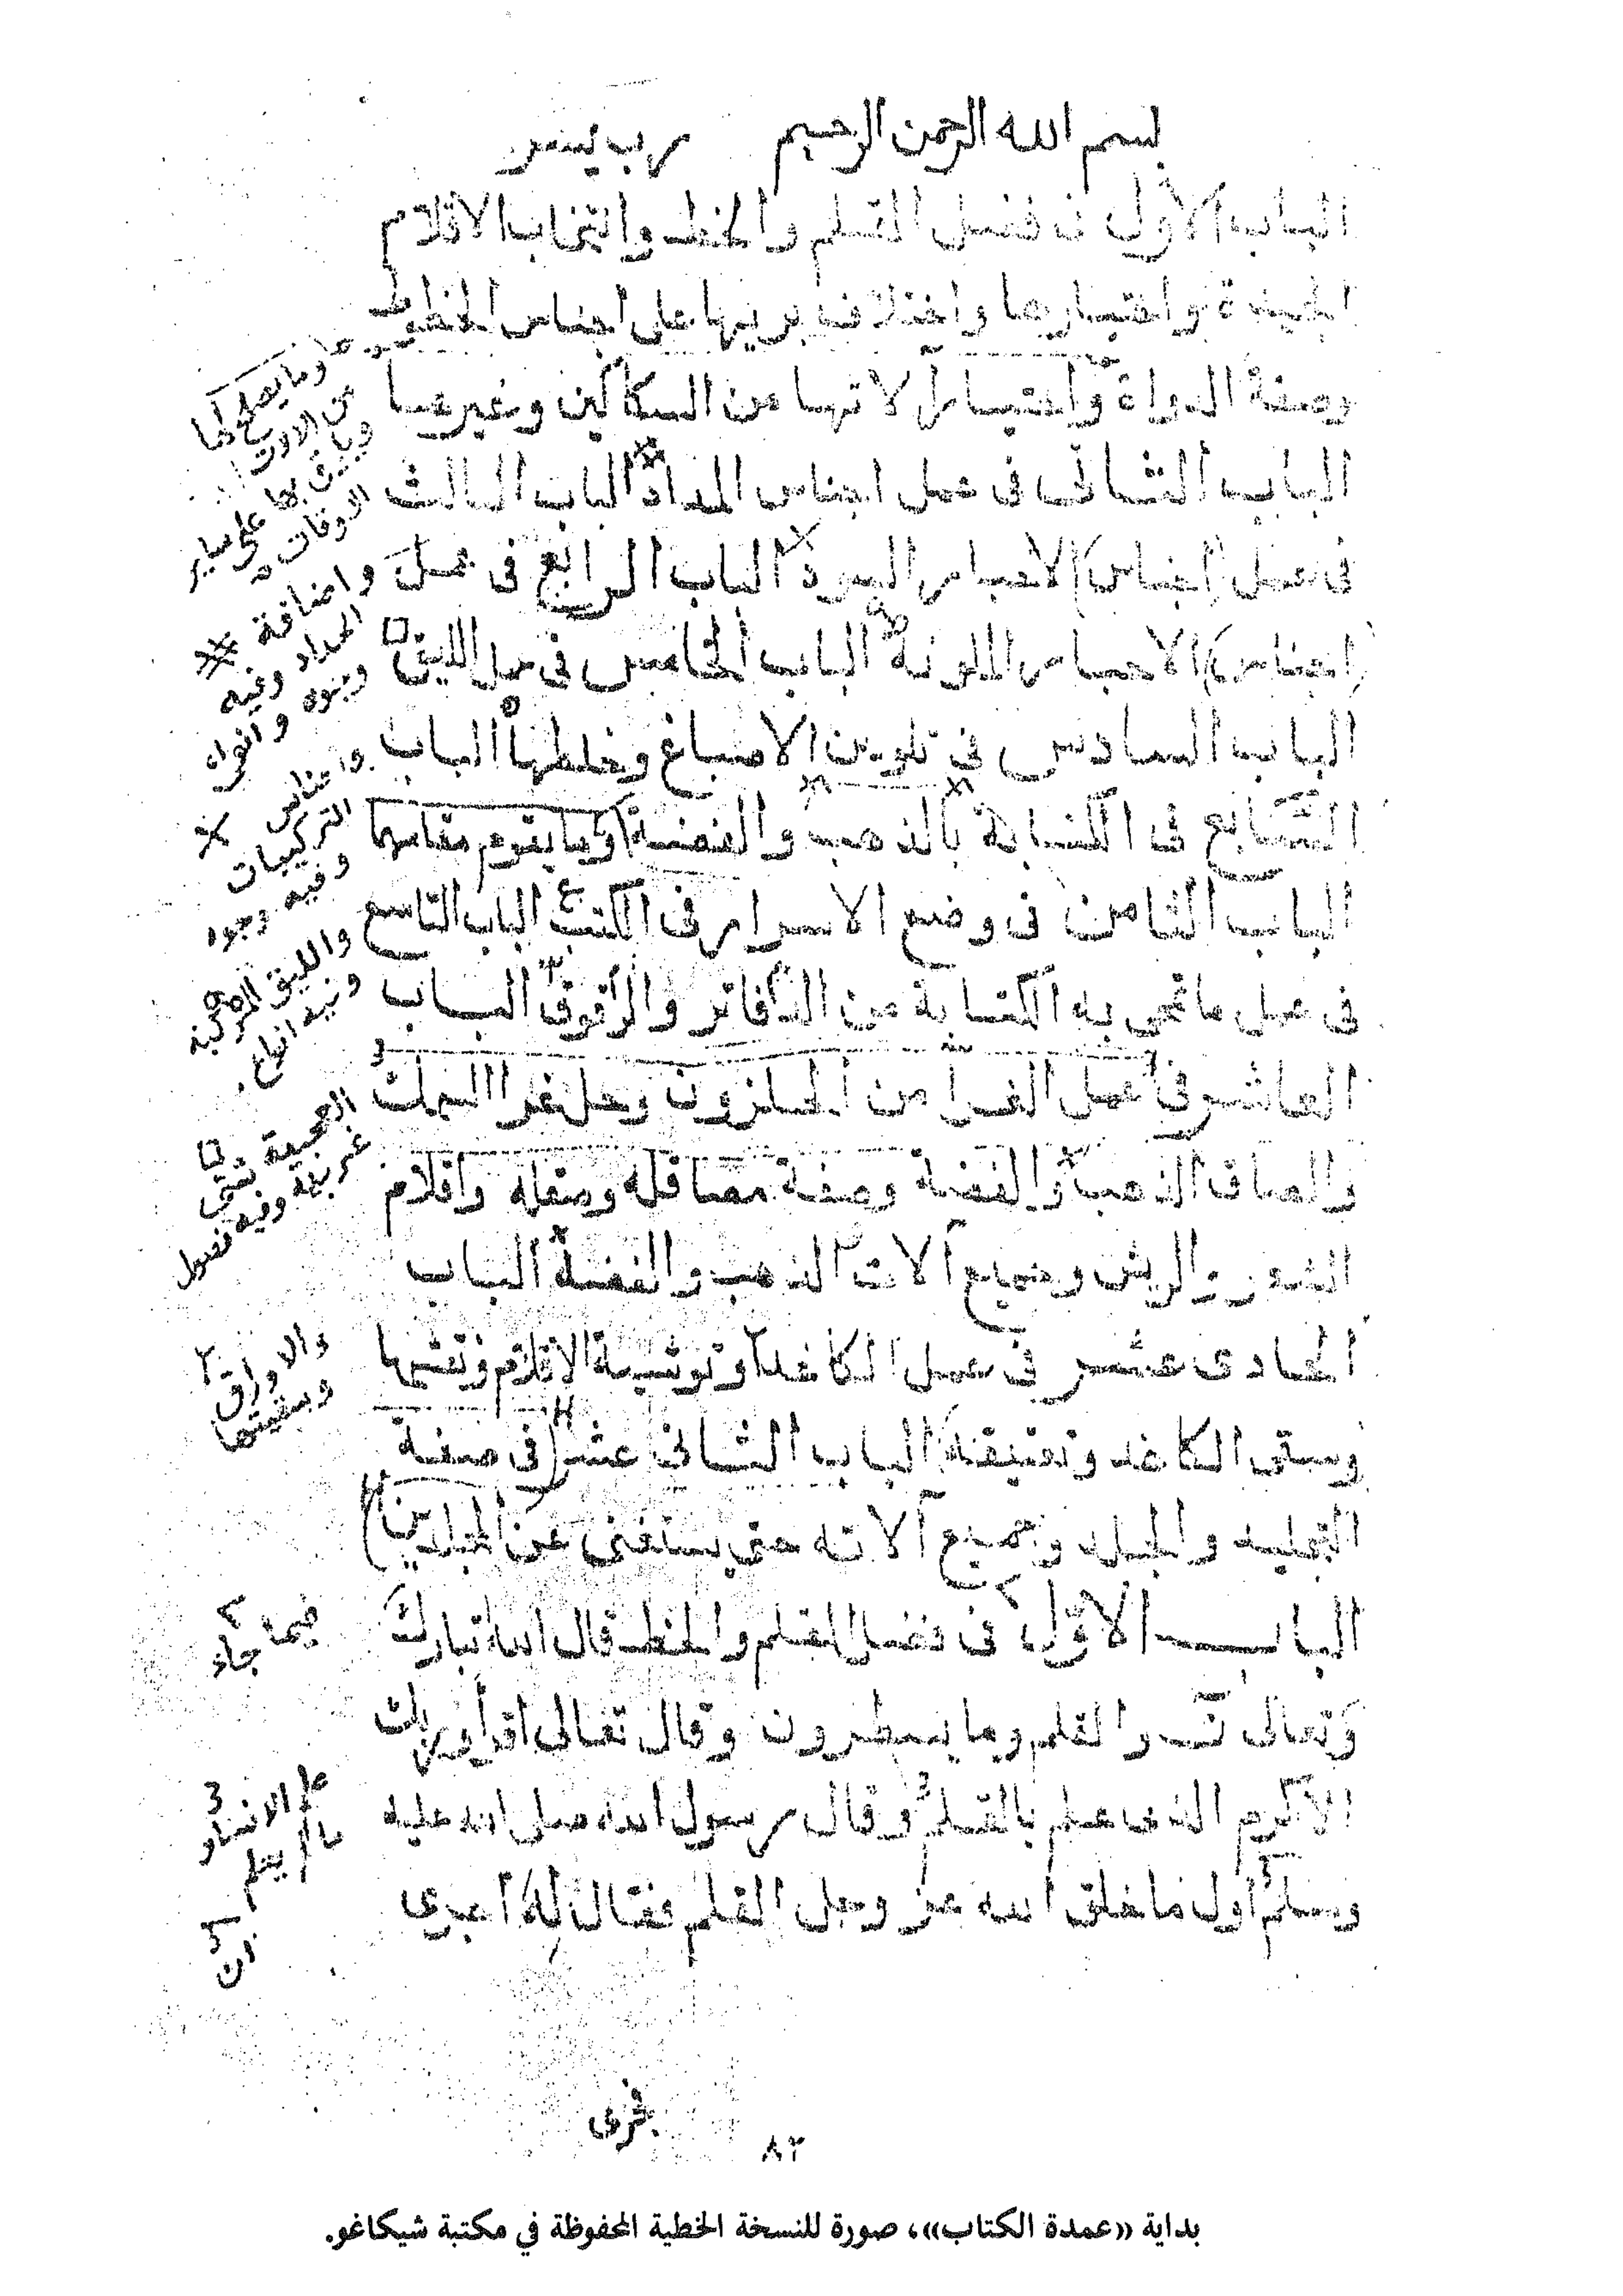 بسم الله الرحمن الرحيم رب يسر
الباب الأول في فضل القلم والخط وانتخاب الاقلام
الجيدة واختيارها واختلاف بريها على اجناس الخطوط
وصفة الدواة واختيار آلاتها من السكاكين وغيرها
الباب الثاني في عمل اجناس المداد الباب الثالث
في عمل اجناس الاحبار السود الباب الرابع في عمل
اجناس الاحبار الملونة الباب الخامس في عمل الليق
الباب السادس في تلوين الاصباغ وخلطها الباب
السابع في الكتابة بالذهب والفضة وما يقوم مقامهما
الباب الثامن في وضع الاسرار في الكتب الباب التاسع
في عمل ما تمحى به الكتابة من الدفاتر والرقوق الباب
العاشر في عمل الغرا من الحلزون وحل غرا السمك
والصاق الذهب والفضة وصفة مصاقله وصقله واقلام
الشعر والريش وجميع آلات الذهب والفضة الباب
الحادى عشر في عمل الكاغد وتوشية الاقلام ونقشها
وسقى الكاغد وتعتيقه الباب الثانى عشر في صفة
التجليد والجلد وجميع آلاته حتى يستغنى عن المجلدين
الباب الاول في فضل القلم والخط قال الله تبارك
وتعالى ن والقلم وما يسطرون وقال تعالى اقرأ وربك
الاكرم الذى علم بالقلم وقال رسول الله صلى الله عليه
وسلم أول ما خلق الله عز وجل القلم فقال له اجرى
وما يصلح لها
من الاوت
على ساير
الاوقات
واضافة
المداد وفيه
وجوه وانواع
التركيبات
وفيه وجوه
والليق المركبة
وفيه انواع
العجيبة
غريبة وفيه فصول
والاوراق
وسقيتها
فيما جاء
علم الانسان
ما لم يعلم
ان
فجرى
٨٢
بداية «عمدة الكتاب»، صورة للنسخة الخطية المحفوظة في مكتبة شيكاغو.